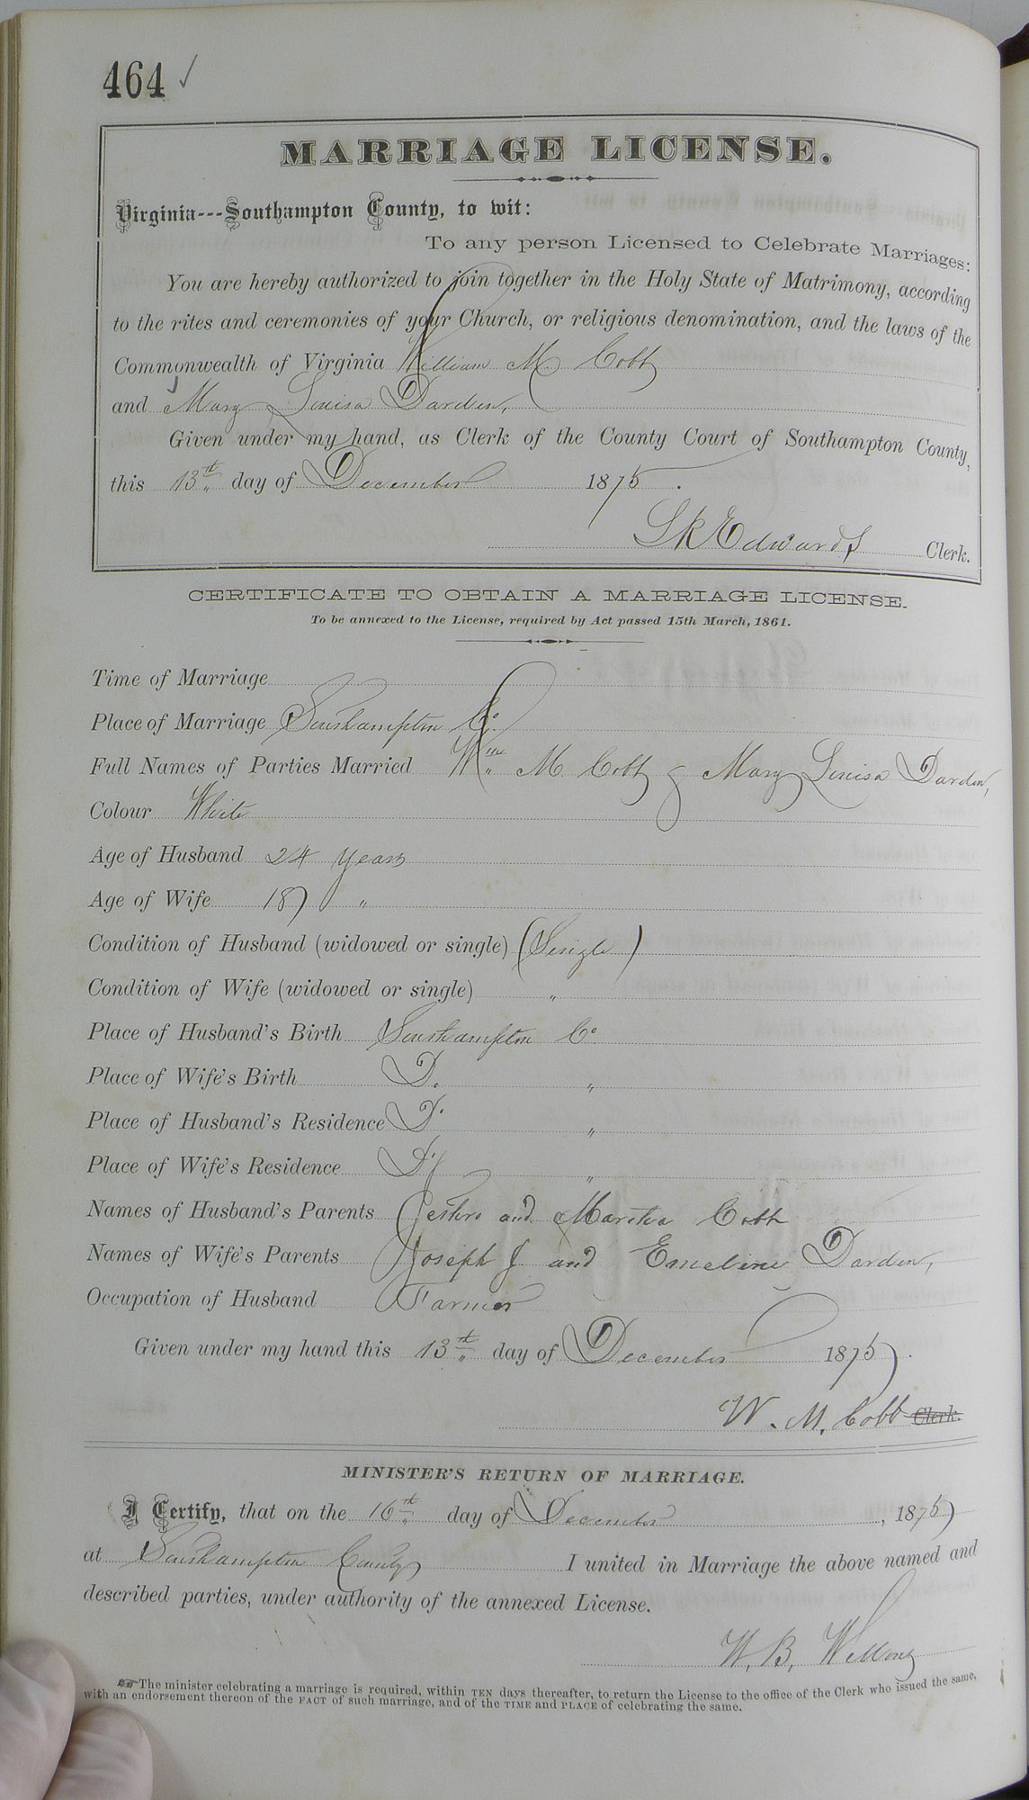 464 ✓
MARRIAGE LICENSE.
Virginia---Southampton County, to wit:
To any person Licensed to Celebrate Marriages:
You are hereby authorized to join together in the Holy State of Matrimony, according
to the rites and ceremonies of your Church, or religious denomination, and the laws of the
Commonwealth of Virginia William M. Cobb
and Mary Louisa Darden,
Given under my hand, as Clerk of the County Court of Southampton County,
this 13th day of December 1875.
Clerk.
L R Edwards
CERTIFICATE TO OBTAIN A MARRIAGE LICENSE.
To be annexed to the License, required by Act passed 15th March, 1861.
Time of Marriage
Place of Marriage Southampton Co.
Full Names of Parties Married Wm M Cobb & Mary Louisa Darden,
Colour White
Age of Husband 24 years
Age of Wife 18 "
Condition of Husband (widowed or single) (Single)
Condition of Wife (widowed or single) "
Place of Husband's Birth Southampton Co
Place of Wife's Birth D. "
Place of Husband's Residence D. "
Place of Wife's Residence D. "
Names of Husband's Parents Jethro and Martha Cobb
Names of Wife's Parents Joseph J and Emeline Darden,
Occupation of Husband Farmer
Given under my hand this 13th day of December 1875.
W. M. Cobb Clerk.
MINISTER'S RETURN OF MARRIAGE.
I Certify, that on the 16th day of December, 1875
at Southampton County I united in Marriage the above named and
described parties, under authority of the annexed License.
W. B. Wellons
The minister celebrating a marriage is required, within TEN days thereafter, to return the License to the office of the Clerk who issued the same,
with an endorsement thereon of the FACT of such marriage, and of the TIME and PLACE of celebrating the same.